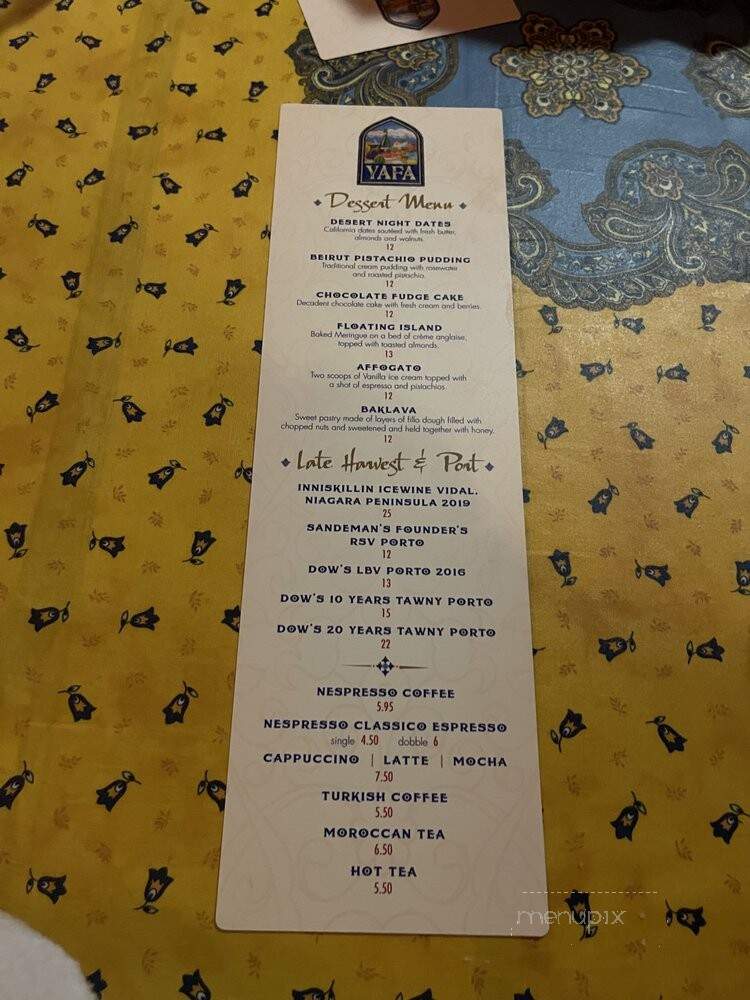 YAFA
Dessert Menu
DESERT NIGHT DATES
California dates sautéed with fresh butter,
almonds and walnuts.
12
BEIRUT PISTACHIO PUDDING
Traditional cream pudding with rosewater
and roasted pistachio.
12
CHOCOLATE FUDGE CAKE
Decadent chocolate cake with fresh cream and berries.
12
FLOATING ISLAND
Baked Meringue on a bed of crème anglaise,
topped with toasted almonds.
13
AFFOGATO
Two scoops of Vanilla ice cream topped with
a shot of espresso and pistachios.
12
BAKLAVA
Sweet pastry made of layers of fillo dough filled with
chopped nuts and sweetened and held together with honey.
12
Late Harvest & Port
INNISKILLIN ICEWINE VIDAL,
NIAGARA PENINSULA 2019
25
SANDEMAN'S FOUNDER'S
RSV PORTO
12
DOW'S LBV PORTO 2016
13
DOW'S 10 YEARS TAWNY PORTO
15
DOW'S 20 YEARS TAWNY PORTO
22
NESPRESSO COFFEE
5.95
NESPRESSO CLASSICO ESPRESSO
single 4.50 dobble 6
CAPPUCCINO | LATTE | MOCHA
7.50
TURKISH COFFEE
5.50
MOROCCAN TEA
6.50
HOT TEA
5.50
menupix